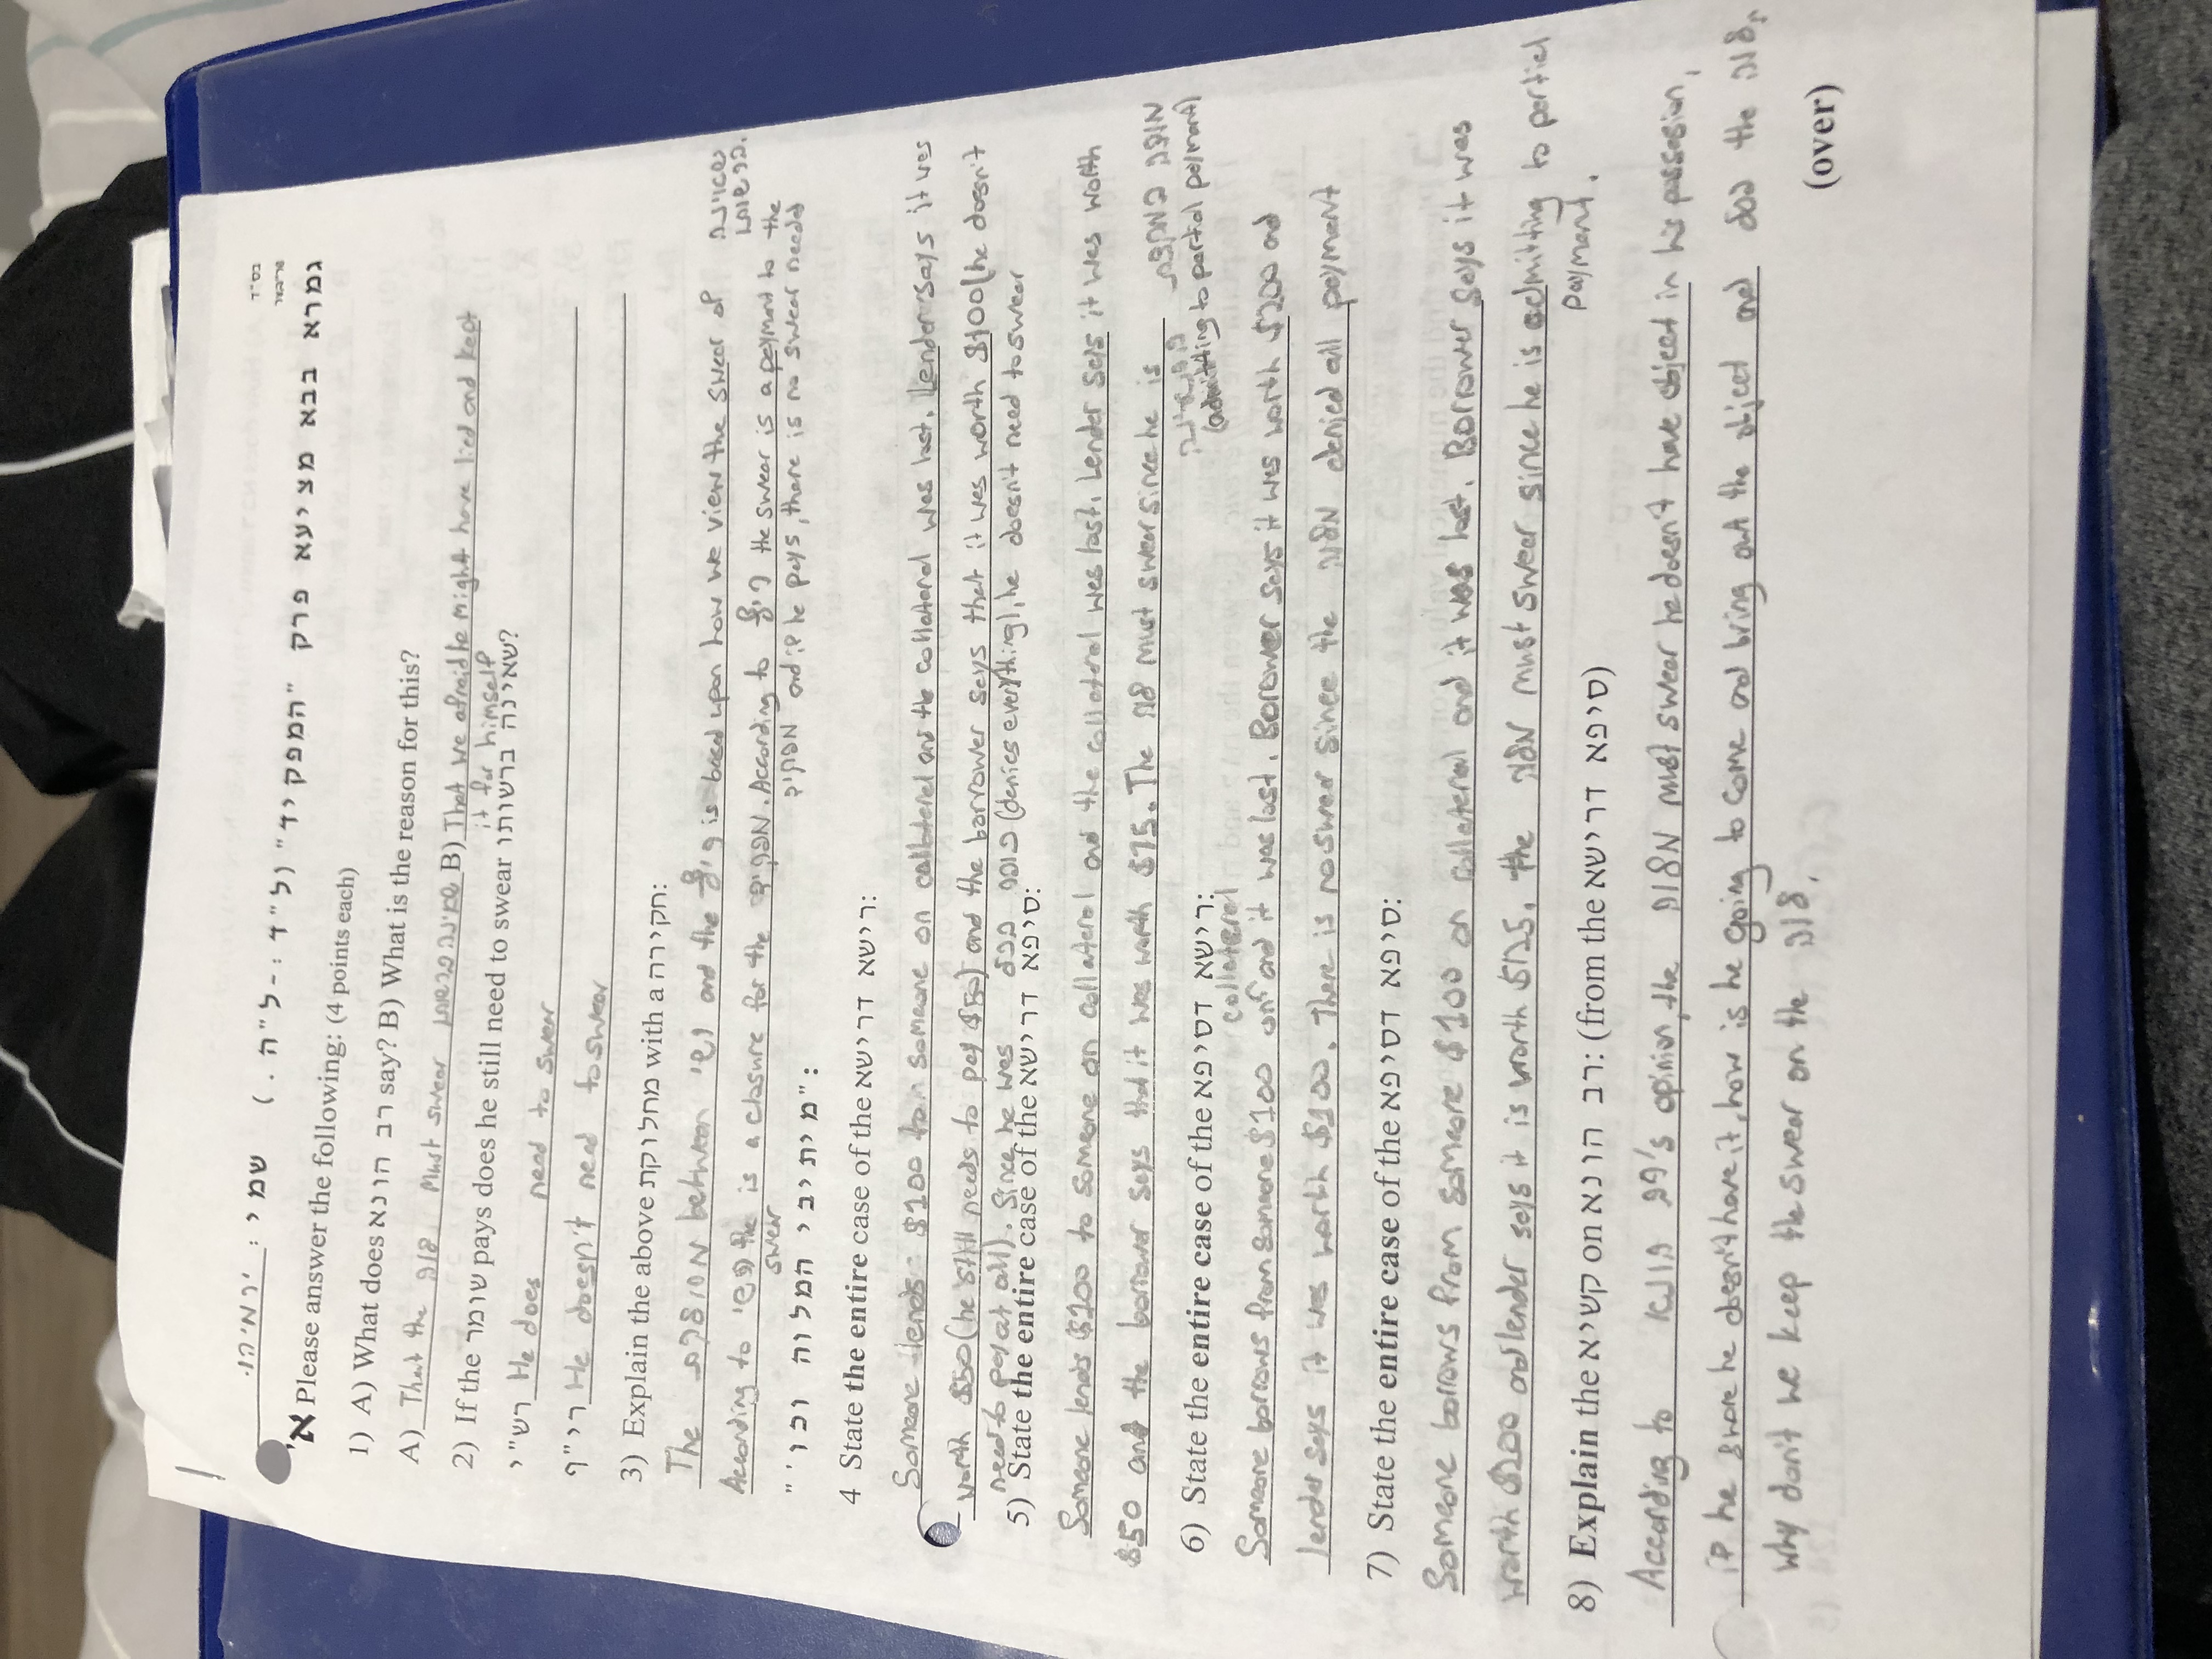 בס"ד
גמרא בבא מציעא פרק "המפקיד" (ל"ד:-ל"ה.) שמי: ירמיהו
א' Please answer the following: (4 points each)
1) A) What does רב הונא say? B) What is the reason for this?
A) That the מלוה Must swear שאינה ברשותו B) That we afraid he might have lied and kept
it for himself
2) If the שומר pays does he still need to swear שאינה ברשותו?
רש"י He does need to swear
רי"ף He doesn't need to swear
3) Explain the above מחלוקת with a חקירה:
The מחלוקת between רשי and the רי"ף is based upon how we view the swear of שאינה
ברשותו.
According to רשי the swear is a closure for the מפקיד. According to רי"ף the swear is a payment to the
מפקיד and if he pays, there is no swear needed
"מיתיבי המלוה וכו'":
4 State the entire case of the רישא דרישא:
Someone lends $100 to someone on collateral and the collateral was lost. Lender says it was
worth $50 (he still needs to pay $50) and the borrower says that it was worth $100 (he doesn't
need to pay at all). Since he was כופר בכל (denies everything), he doesn't need to swear
5) State the entire case of the סיפא דרישא:
Someone lends $100 to someone on collateral and the collateral was lost. Lender says it was worth
$50 and the borrower says that it was worth $75. The לוה must swear since he is מודה במקצת
(admitting to partial payment)
6) State the entire case of the רישא דסיפא:
Someone borrows from someone $100 on collateral and it was lost. Borower says it was worth $200 and
lender says it was worth $100. There is no swear since the מלוה denied all payment
7) State the entire case of the סיפא דסיפא:
Someone borrows from someone $100 on collateral and it was lost. Borrower says it was
worth $200 and lender says it is worth $125. the מלוה must swear since he is admitting to partial
payment.
8) Explain the קשיא on רב הונא: (from the סיפא דרישא)
According to רב הונא's opinion, the מלוה must swear he doesn't have object in his possesion,
if he swore he doesn't have it, how is he going to come and bring out the object and פסל the לוה.
why don't we keep the swear on the לוה.
(over)